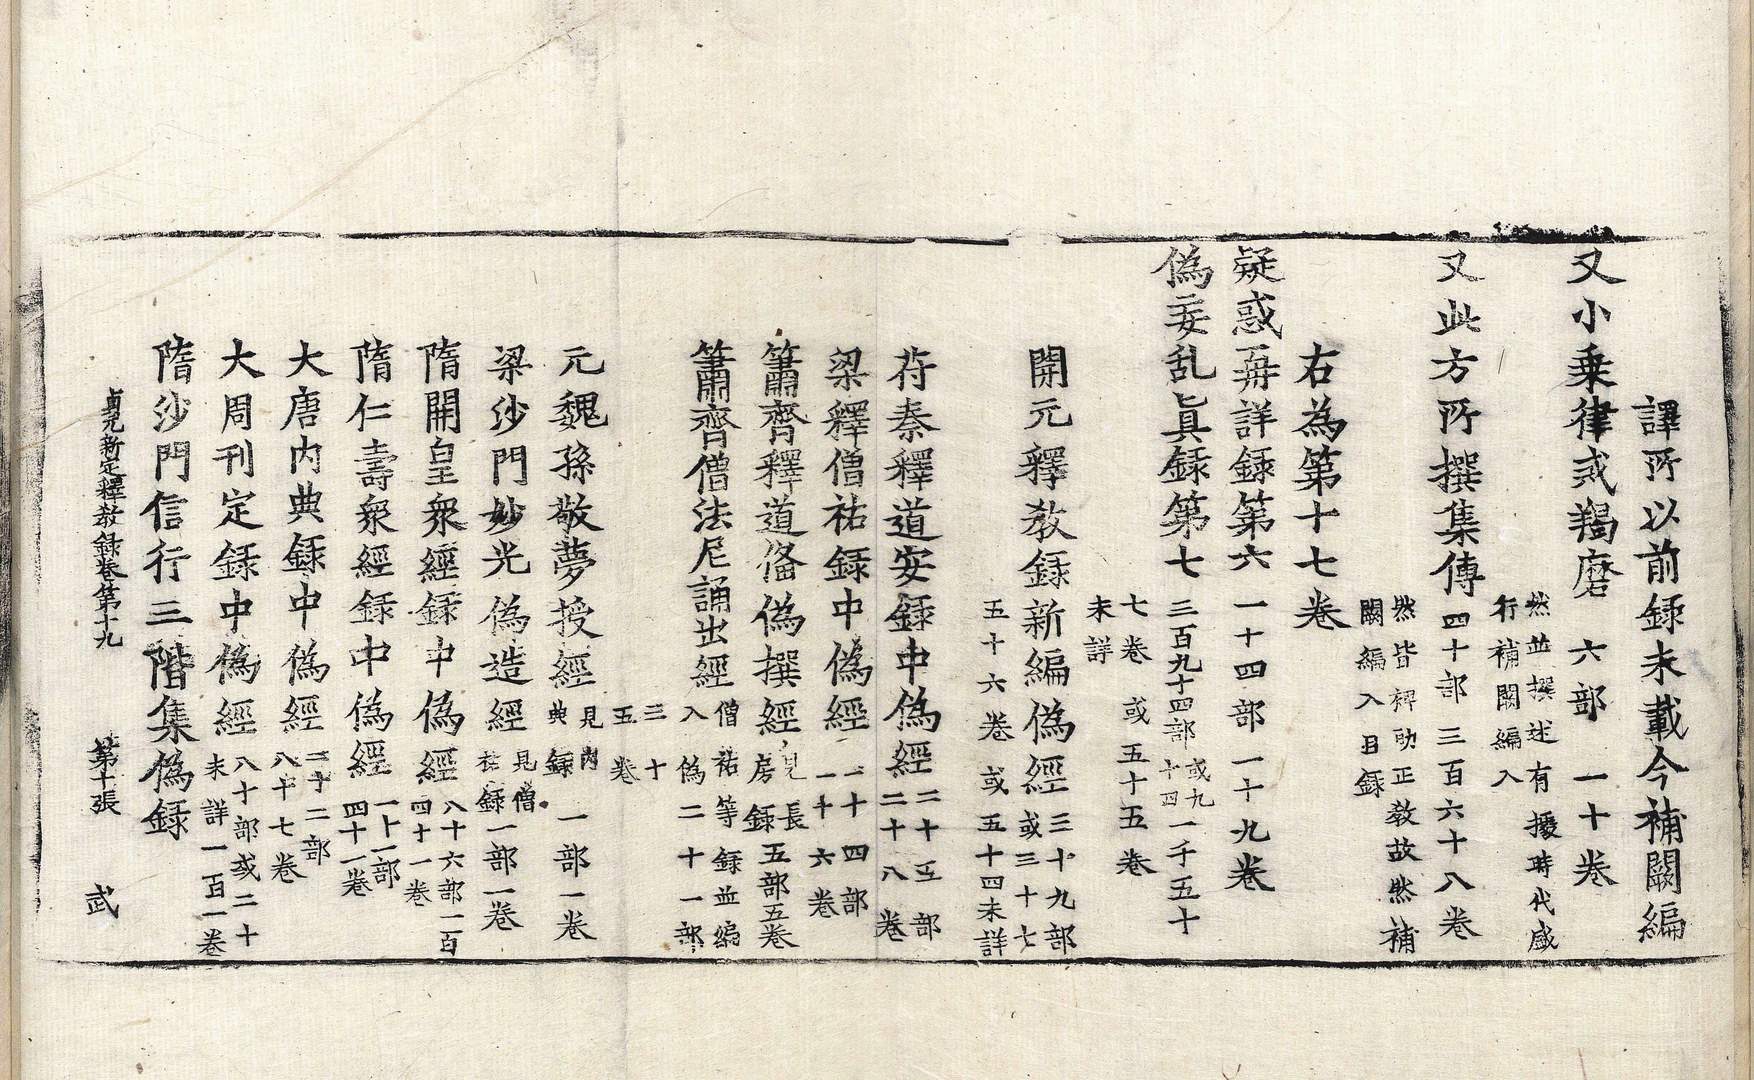 譯所以前録未載今補闕編
又小乗律或羯磨六部一十卷
然並撰述有擾時代盛
行補闕編入
又此方所撰集傳四十部三百六十八卷
然皆裨助正教故然補
闕編入目録
右為第十七卷
疑惑再詳録第六一十四部一十九卷
偽妄乱真録第七三百九十四部或九十四一千五十
七卷或五十五卷
未詳
開元釋教録新編偽經三十九部或三十七
五十六卷或五十四未詳
苻秦釋道安録中偽經二十五部
二十八卷
梁釋僧祐録中偽經二十四部
一十六卷
簫齊釋道俻偽撰經見長
房録五部五卷
簫齊僧法尼誦出經僧祐等録並編
入偽二十一部
三十
五卷
元魏孫敬夢授經見內
典録一部一卷
梁沙門妙光偽造經見僧
祐録一部一卷
隋開皇衆經録中偽經八十六部一百
四十一卷
隋仁壽衆經録中偽經一十一部
四十一卷
大唐内典録中偽經二十二部
八十七卷
大周刊定録中偽經八十部或二十
未詳一百一卷
隋沙門信行三階集偽録
貞元新定釋教録卷第十九　第十張　武